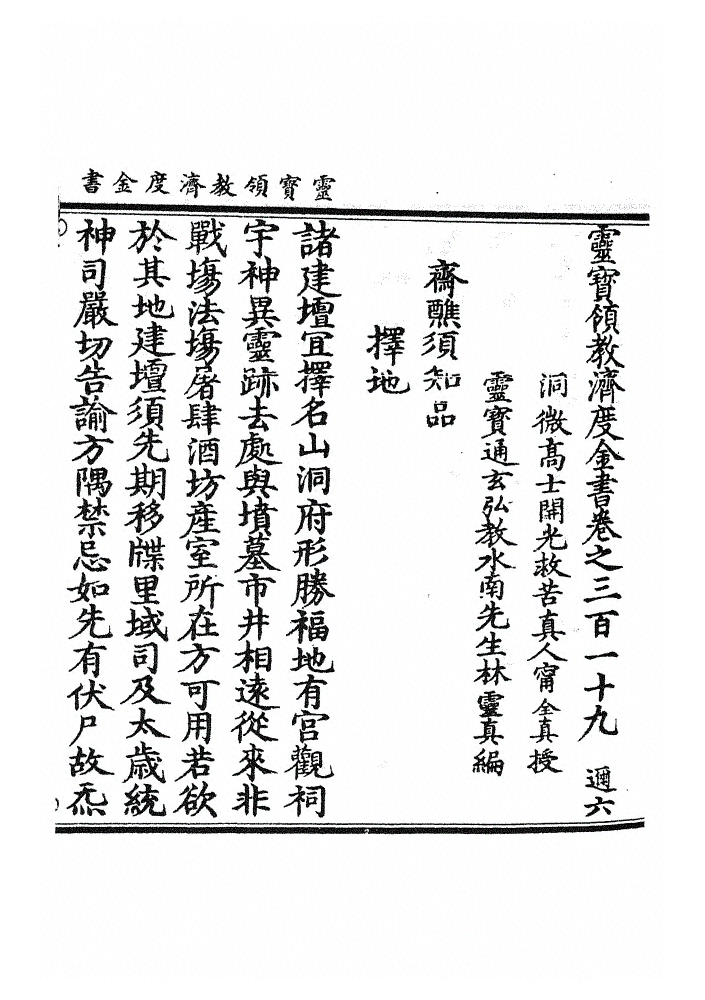 靈寳領教濟度金書
靈寳領教濟度金書卷之三百一十九 邇六
洞微髙士開光救苦真人甯全真授
靈寳通玄弘教水南先生林靈真編
齋醮須知品
擇地
諸建壇宜擇名山洞府形勝福地有宫觀祠
宇神異靈跡去處與墳墓市井相遠從來非
戰塲法塲屠肆酒坊產室所在方可用若欲
於其地建壇須先期移牒里域司及太歲統
神司嚴切告諭方隅禁忌如先有伏尸故炁